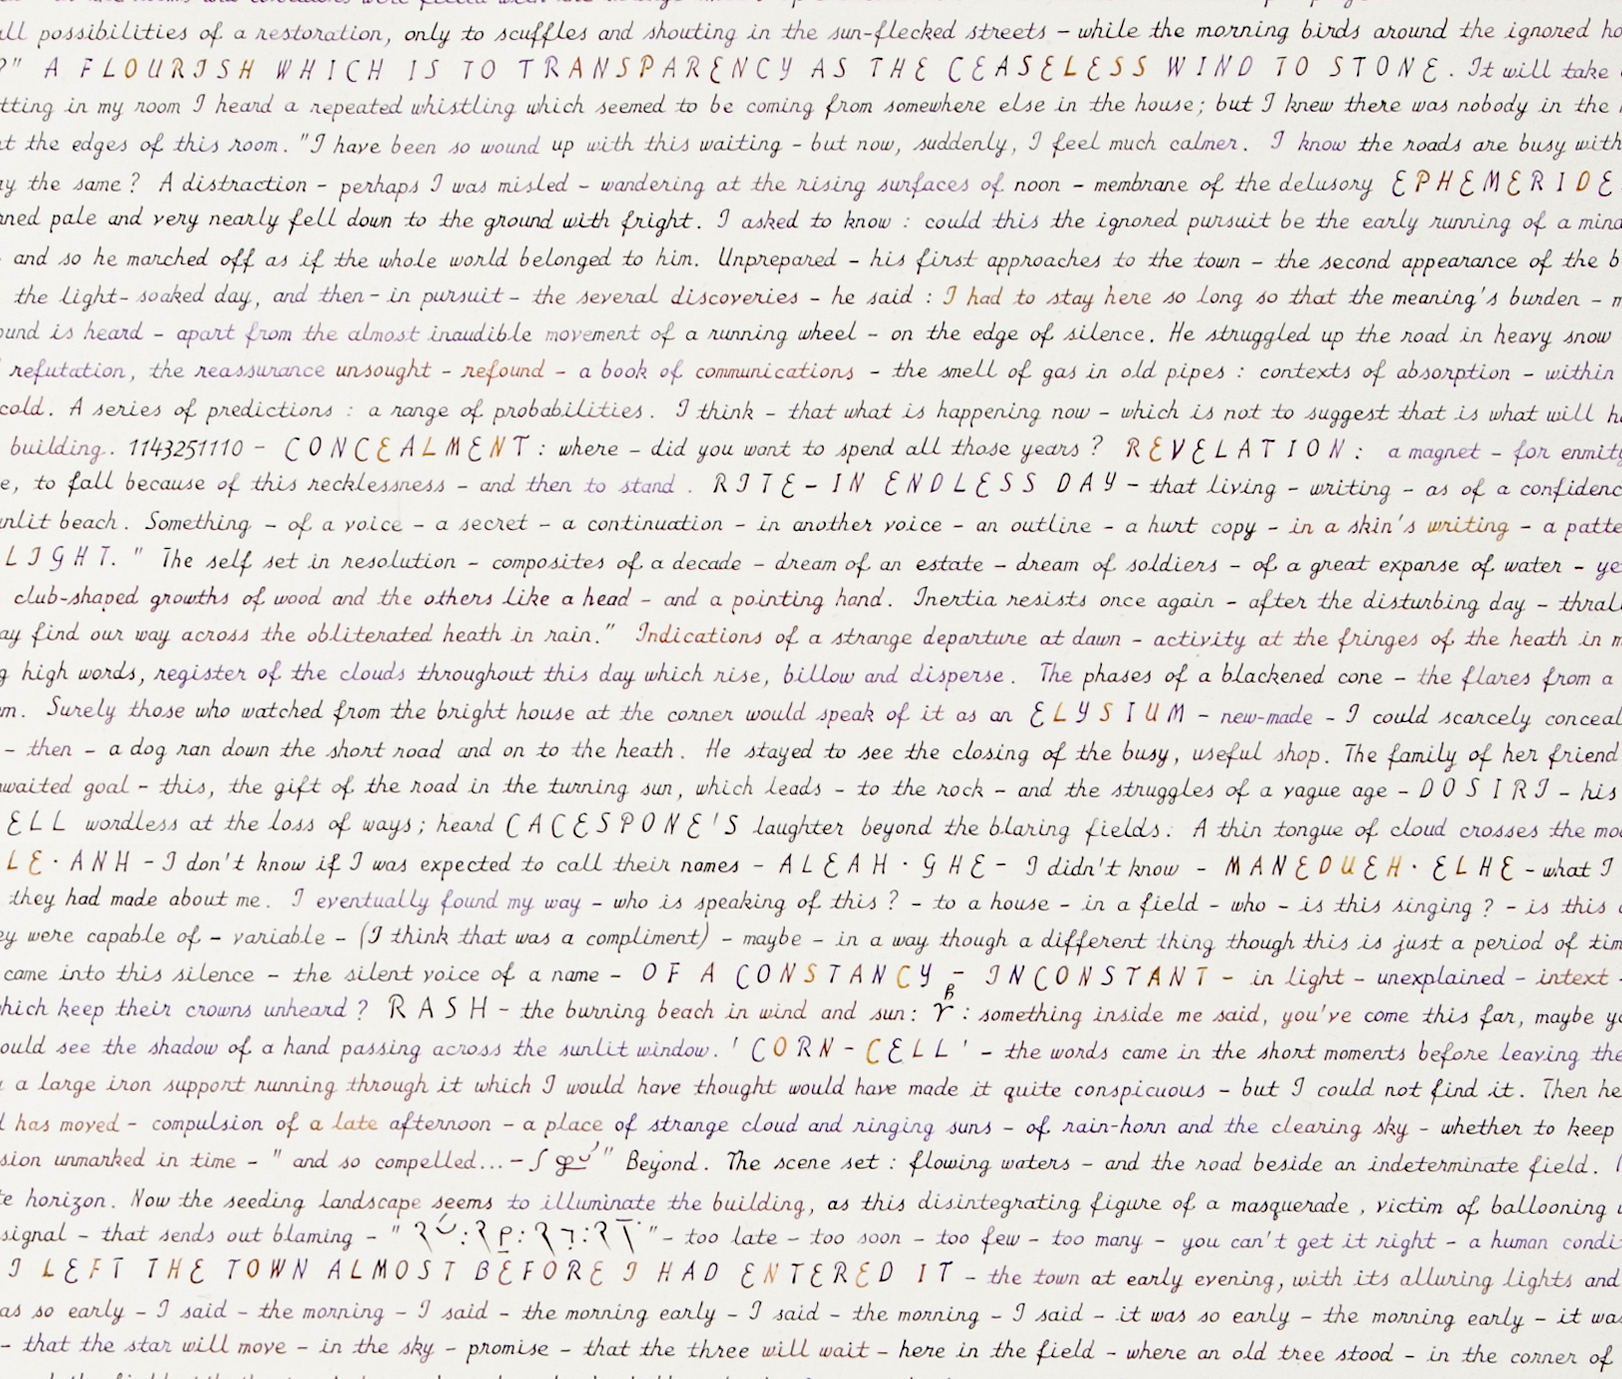 all possibilities of a restoration, only to scuffles and shouting in the sun-flecked streets – while the morning birds around the ignored
?" A FLOURISH WHICH IS TO TRANSPARENCY AS THE CEASELESS WIND TO STONE. It will take
tting in my room I heard a repeated whistling which seemed to be coming from somewhere else in the house; but I knew there was nobody in the
at the edges of this room. "I have been so wound up with this waiting – but now, suddenly, I feel much calmer. I know the roads are busy with
ay the same? A distraction – perhaps I was misled – wandering at the rising surfaces of noon – membrane of the delusory EPHEMERIDE
rned pale and very nearly fell down to the ground with fright. I asked to know : could this the ignored pursuit be the early running of a mind
– and so he marched off as if the whole world belonged to him. Unprepared – his first approaches to the town – the second appearance of the b
the light-soaked day, and then – in pursuit – the several discoveries – he said : I had to stay here so long so that the meaning's burden –
ound is heard – apart from the almost inaudible movement of a running wheel – on the edge of silence. He struggled up the road in heavy snow
refutation, the reassurance unsought – refound – a book of communications – the smell of gas in old pipes : contexts of absorption – within
cold. A series of predictions : a range of probabilities. I think – that what is happening now – which is not to suggest that is what will
building. 1143251110 – CONCEALMENT : where – did you want to spend all those years? REVELATION : a magnet – for enmity
e, to fall because of this recklessness – and then to stand. RITE – IN ENDLESS DAY – that living – writing – as of a confidenc
unlit beach. Something – of a voice – a secret – a continuation – in another voice – an outline – a hurt copy – in a skin's writing – a patte
LIGHT." The self set in resolution – composites of a decade – dream of an estate – dream of soldiers – of a great expanse of water – ye
club-shaped growths of wood and the others like a head – and a pointing hand. Inertia resists once again – after the disturbing day – thral
ay find our way across the obliterated heath in rain." Indications of a strange departure at dawn – activity at the fringes of the heath in
g high words, register of the clouds throughout this day which rise, billow and disperse. The phases of a blackened cone – the flares from a
m. Surely those who watched from the bright house at the corner would speak of it as an ELYSIUM – new-made – I could scarcely conceal
– then – a dog ran down the short road and on to the heath. He stayed to see the closing of the busy, useful shop. The family of her friend
waited goal – this, the gift of the road in the turning sun, which leads – to the rock – and the struggles of a vague age – DOSIRI – his
ELL wordless at the loss of ways; heard CACESPONE'S laughter beyond the blaring fields. A thin tongue of cloud crosses the mo
LE · ANH – I don't know if I was expected to call their names – ALEAH · GHE – I didn't know – MANEDUEH · ELHE – what I
they had made about me. I eventually found my way – who is speaking of this? – to a house – in a field – who – is this singing? – is this
ey were capable of – variable – (I think that was a compliment) – maybe – in a way though a different thing though this is just a period of tim
came into this silence – the silent voice of a name – OF A CONSTANCY – INCONSTANT – in light – unexplained – intext
which keep their crowns unheard? RASH – the burning beach in wind and sun: : something inside me said, you've come this far, maybe
ould see the shadow of a hand passing across the sunlit window. 'CORN – CELL' – the words came in the short moments before leaving the
a large iron support running through it which I would have thought would have made it quite conspicuous – but I could not find it. Then he
has moved – compulsion of a late afternoon – a place of strange cloud and ringing suns – of rain-horn and the clearing sky – whether to keep
sion unmarked in time – " and so compelled... – " Beyond. The scene set : flowing waters – and the road beside an indeterminate field.
te horizon. Now the seeding landscape seems to illuminate the building, as this disintegrating figure of a masquerade, victim of ballooning
signal – that sends out blaming – " " – too late – too soon – too few – too many – you can't get it right – a human condi
I LEFT THE TOWN ALMOST BEFORE I HAD ENTERED IT – the town at early evening, with its alluring lights and
as so early – I said – the morning – I said – the morning early – I said – the morning – I said – it was so early – the morning early – it was
– that the star will move – in the sky – promise – that the three will wait – here in the field – where an old tree stood – in the corner of